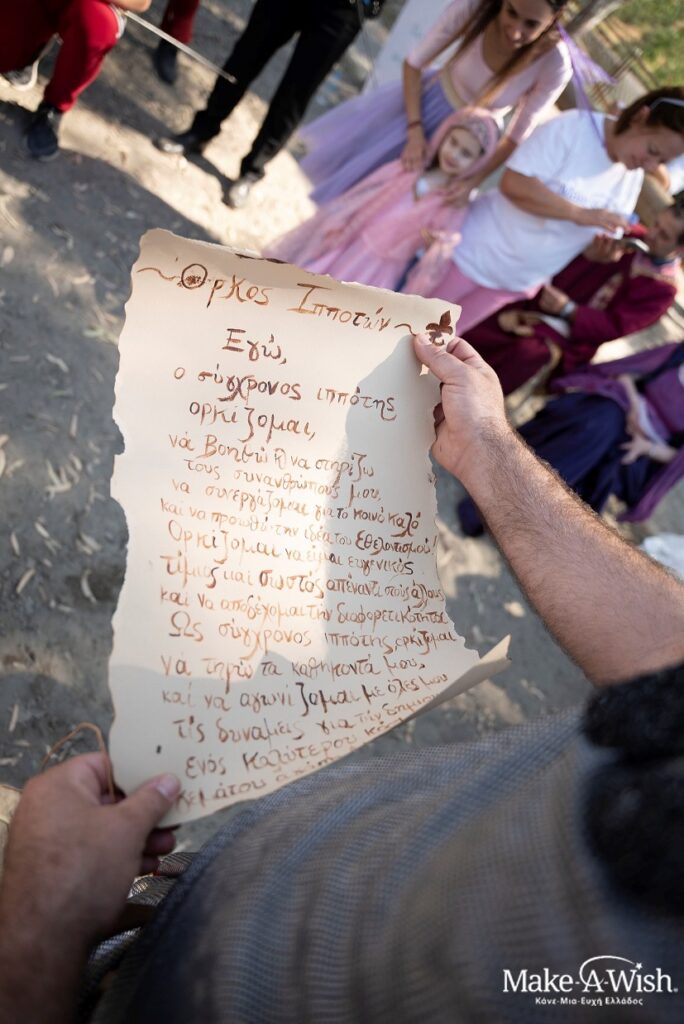 Όρκος Ιπποτών
Εγώ,
ο σύγχρονος ιππότης
ορκίζομαι,
νά βοηθώ & να στηρίζω
τους συνανθρώπους μου,
να συνεργάζομαι για το κοινό καλό
και να προωθώ την ιδέα του Εθελοντισμού!
Ορκίζομαι να είμαι ευγενικός
τίμιος και σωστός απέναντι στους άλλους
και να αποδέχομαι την διαφορετικότητα
Ως σύγχρονος ιππότης, ορκίζομαι
νά τηρώ τα καθήκοντά μου,
και να αγωνίζομαι με όλες μου
τίς δυνάμεις για την
ενός καλύτερου
Make-A-Wish®
Κάνε-Μια-Ευχή Ελλάδος